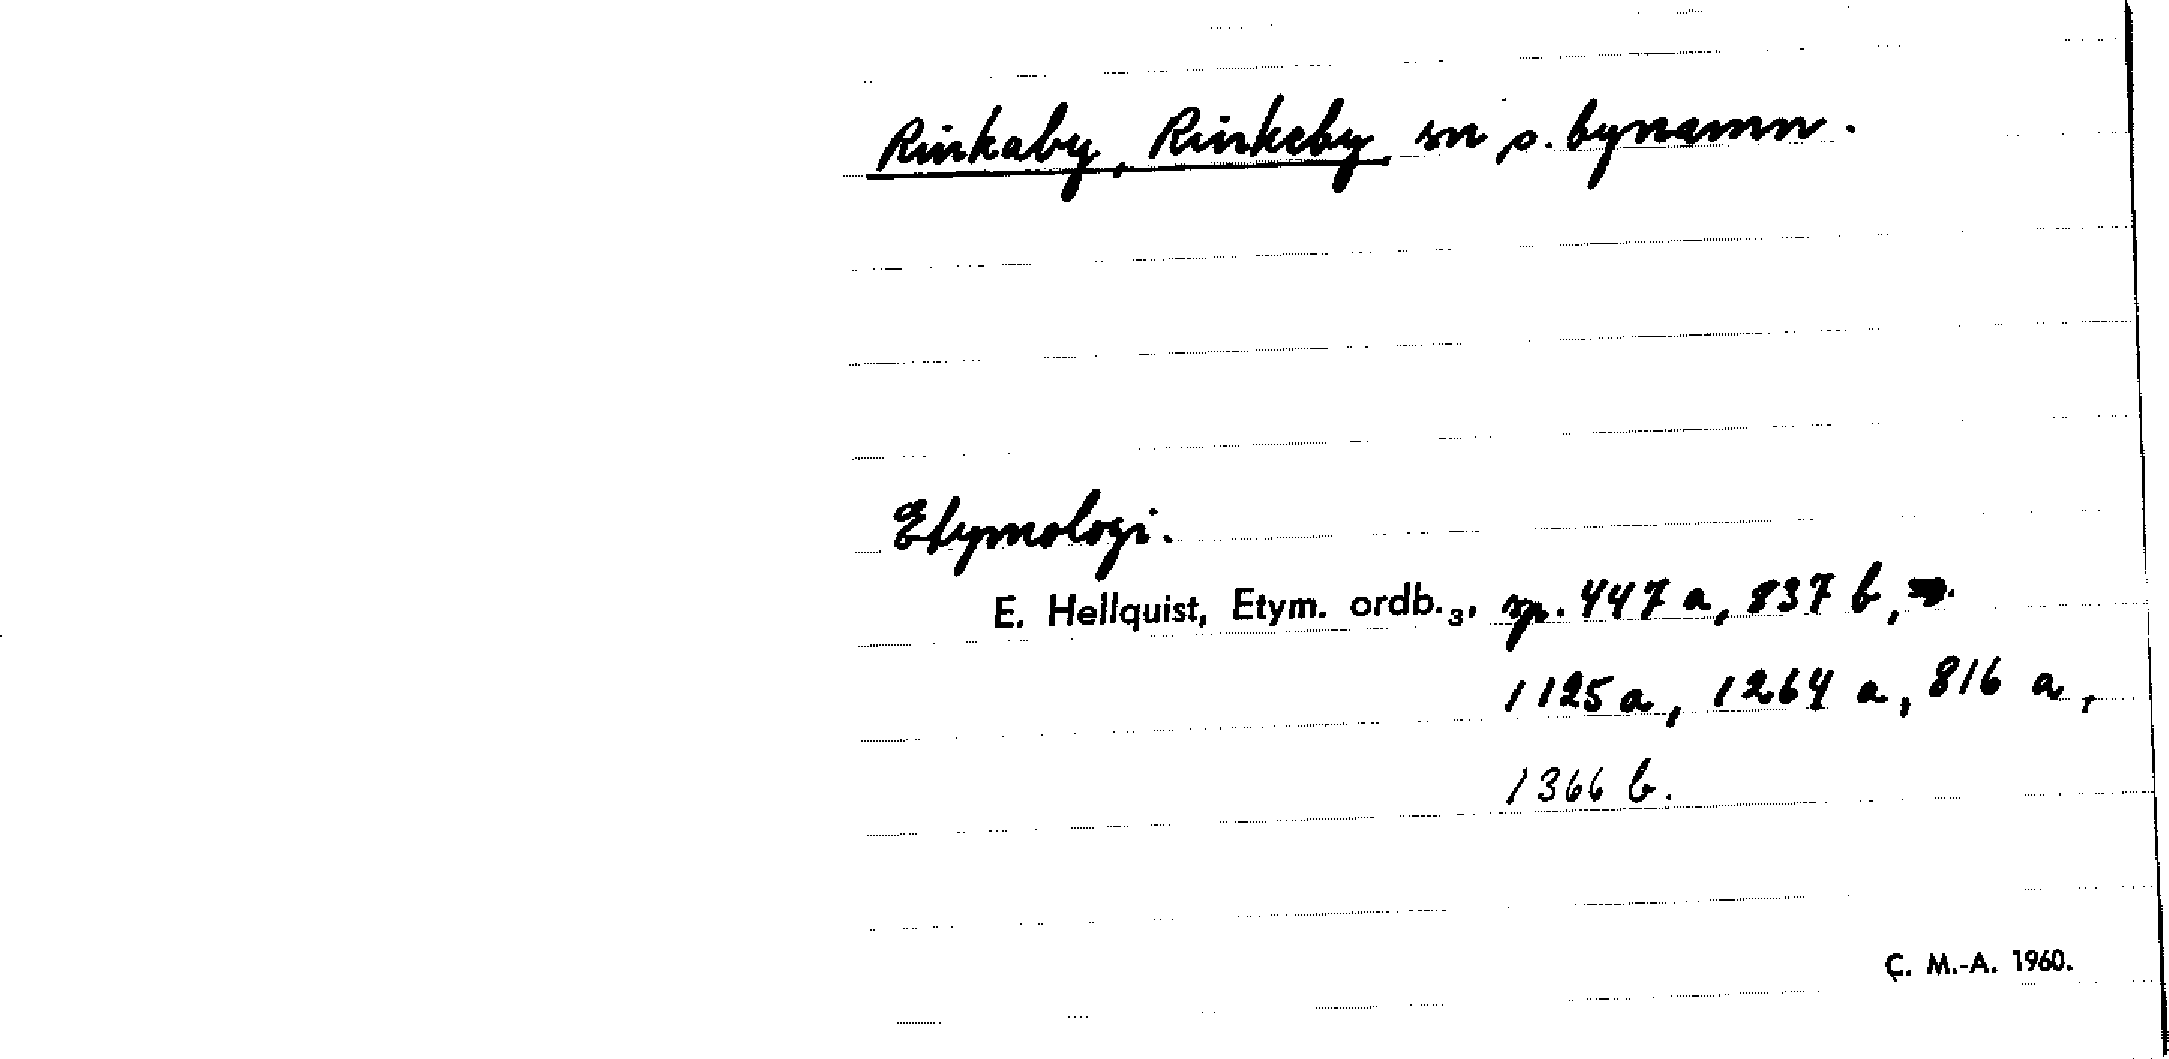 Rinkaby, Rinkeby sn s. bynamn.
Etymologi.
E. Hellquist, Etym. ordb.₃, sp. 447 a, 837 b,
1125 a, 1264 a, 816 a,
1366 b.
C. M.-A. 1960.